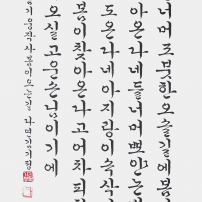 너머 조붓한 오솔길에 봄
아온다네 들 너머 뽀얀 논
도 온다네 아지랑이 속삭
봄이 찾아온다고 어차피
오실 고운 손님이기에
기웅 작사 봄이 오는 길